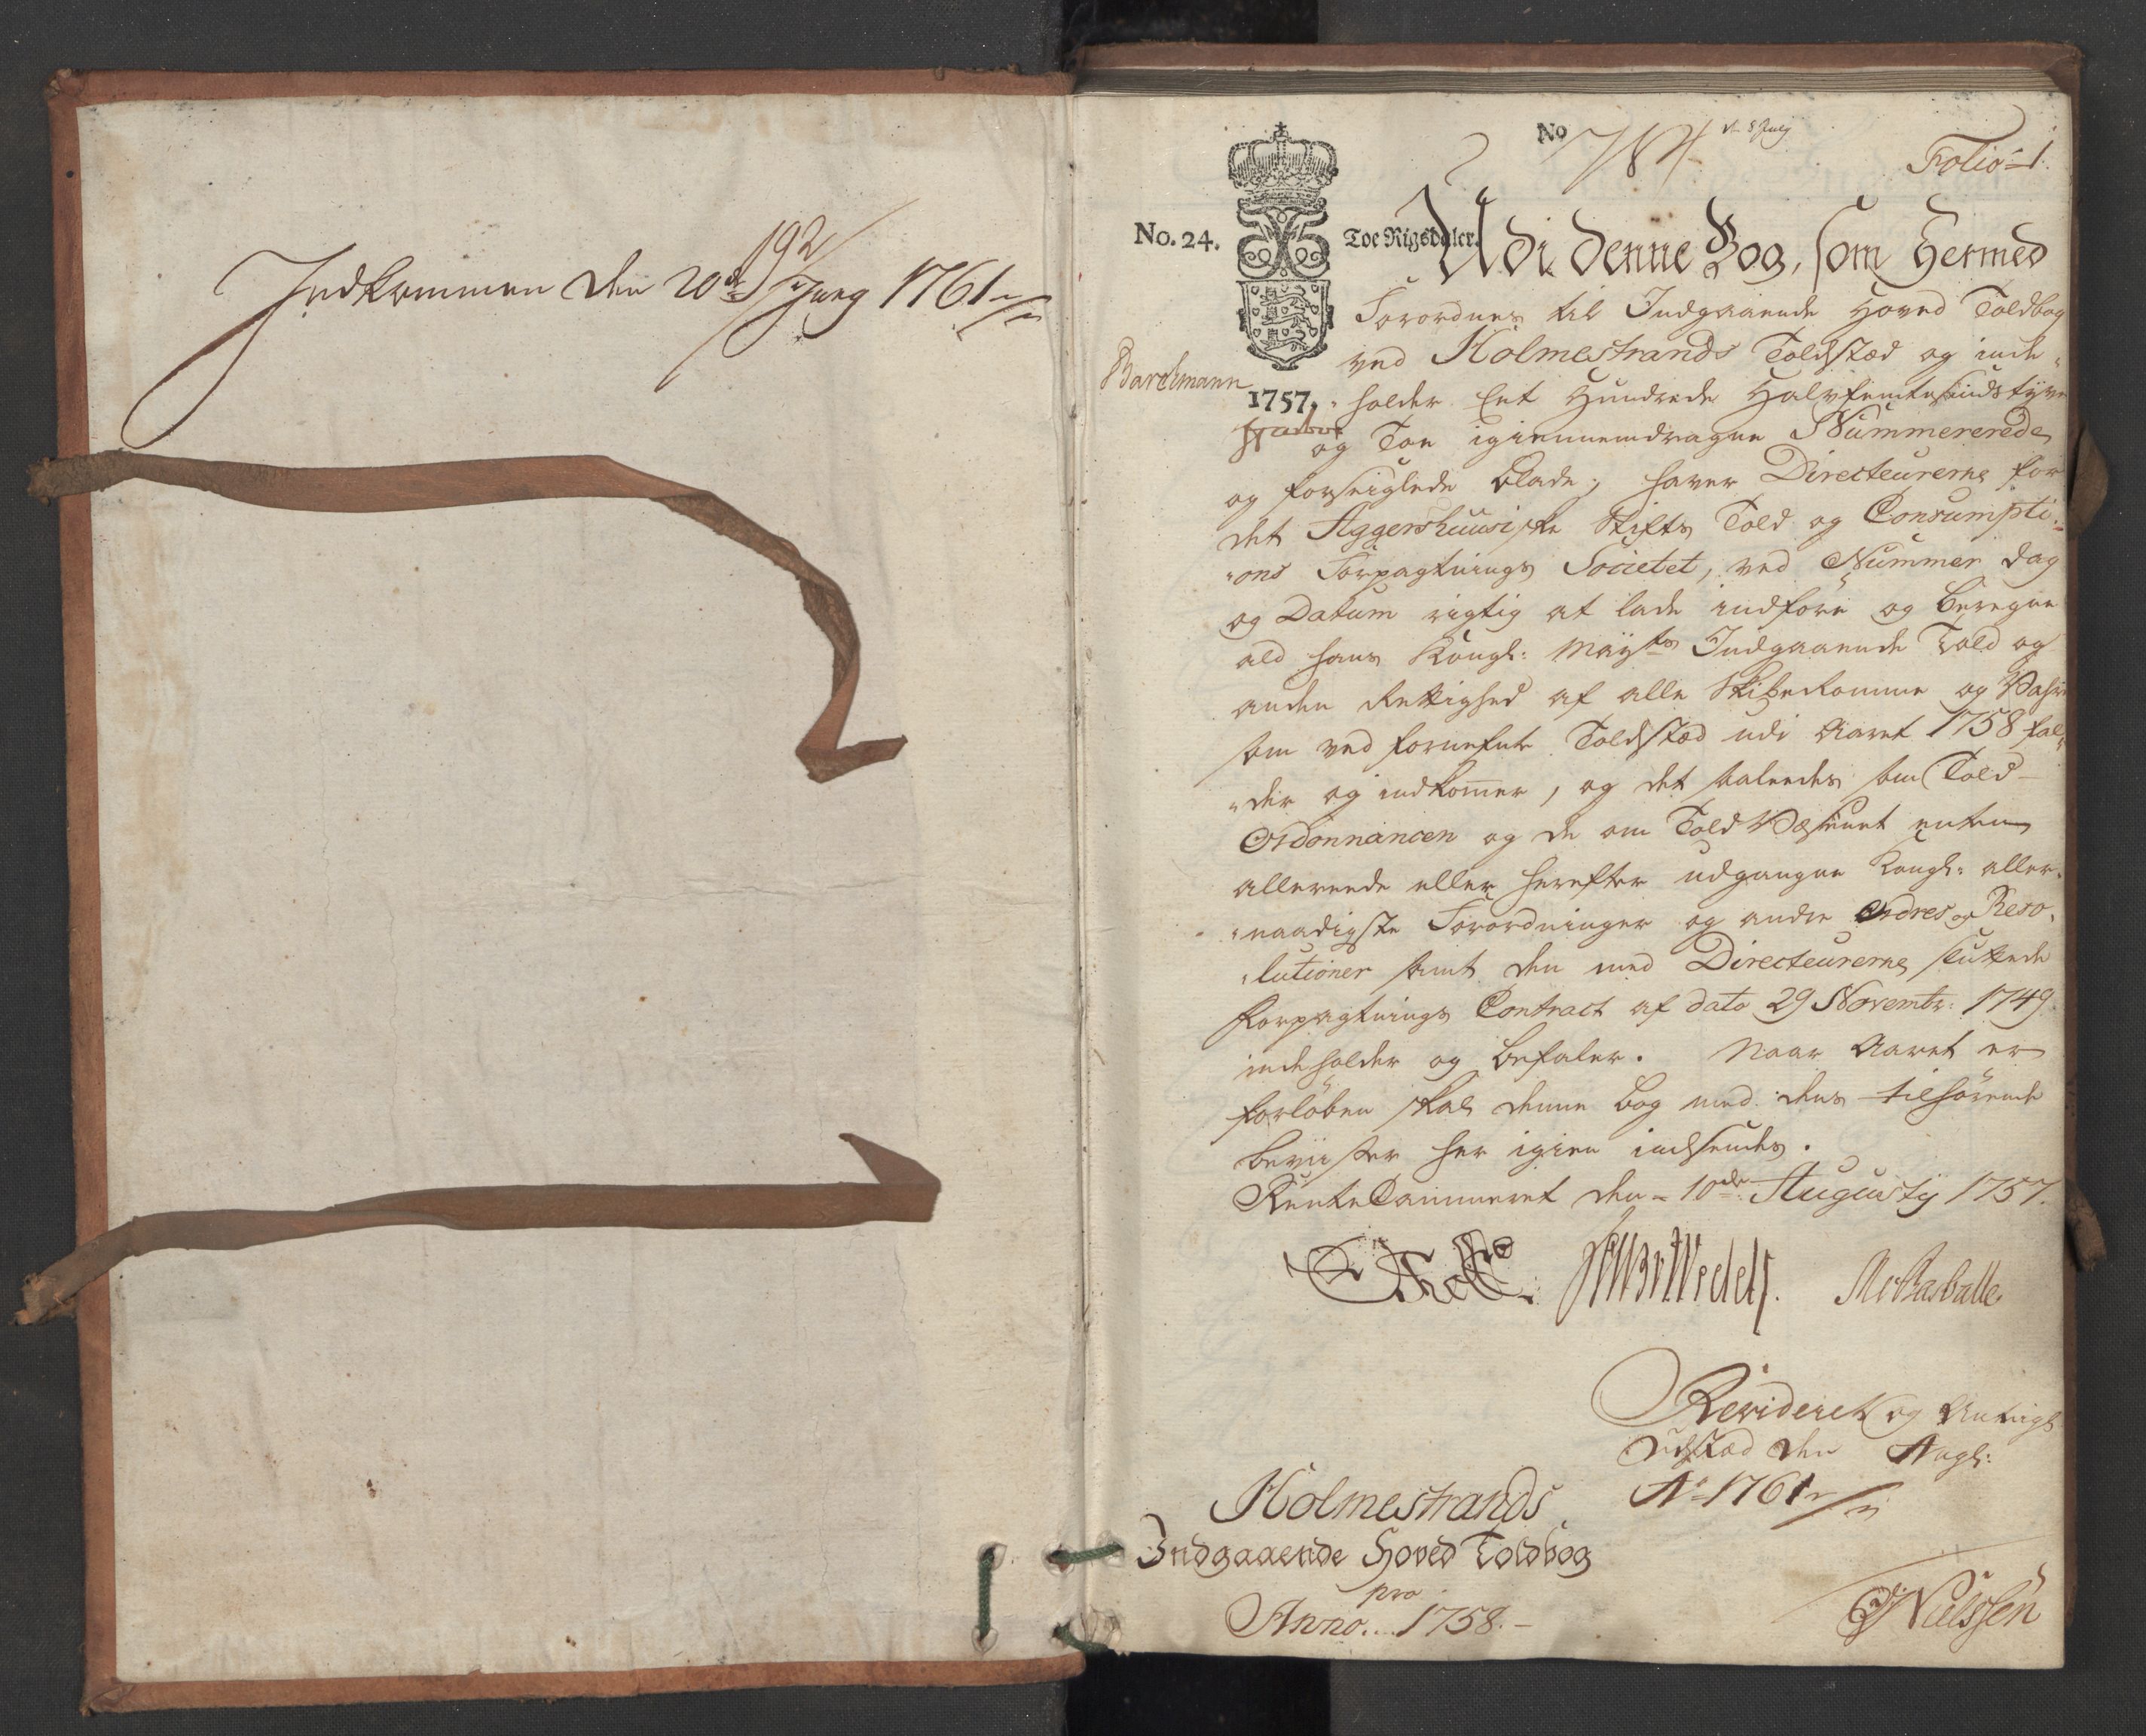 192
Indkommen den 20de Juny 1761
No 784
Folio 1.
No. 24.
Toe Rigsdaler.
Udi denne Bog, som Hermed
Forordnes til Indgaaende Hoved Toldbog
ved Holmestrands Toldsted og inde-
Barchmann
1757.
holder Eet Hundrede Halvfemtesindstyve
og Toe igiennemdragne Nummererede
og forseiglede Blade; haver Directeurerne for
det Aggershuusiske Stifts Told og Consumpti-
ons Forpagtnings Societet, ved Nummer Dag
og Datum rigtig at lade indføre og beregne
ald hans Kongl: Mayts Indgaaende Told og
anden Rettighed af alle Skibe komme og Vahre
som ved fornefnte Toldsted udi Aaret 1758 fal-
der og indkommer, og det saaledes som Told-
Ordonnancen og de om Told Væsenet enten
allereede eller herefter udgangne Kongl: aller-
naadigste Forordninger og andre Ordres og Reso-
lutioner samt den med Directeurerne sluttede
Forpagtnings Contract af dato 29 Novembr: 1749
indeholder og befaler. Naar Aaret er
forløben skal denne bog med dens tilhørende
beviiser her igien indsendes.
Rente Cammeret den 10de Augustij 1757.
Revideret og Antegl:
Udsted den Aug:
Ao 1761
Holmestrands
Indgaaende Hoved Toldbog
pro
Anno 1758.
Nielssen